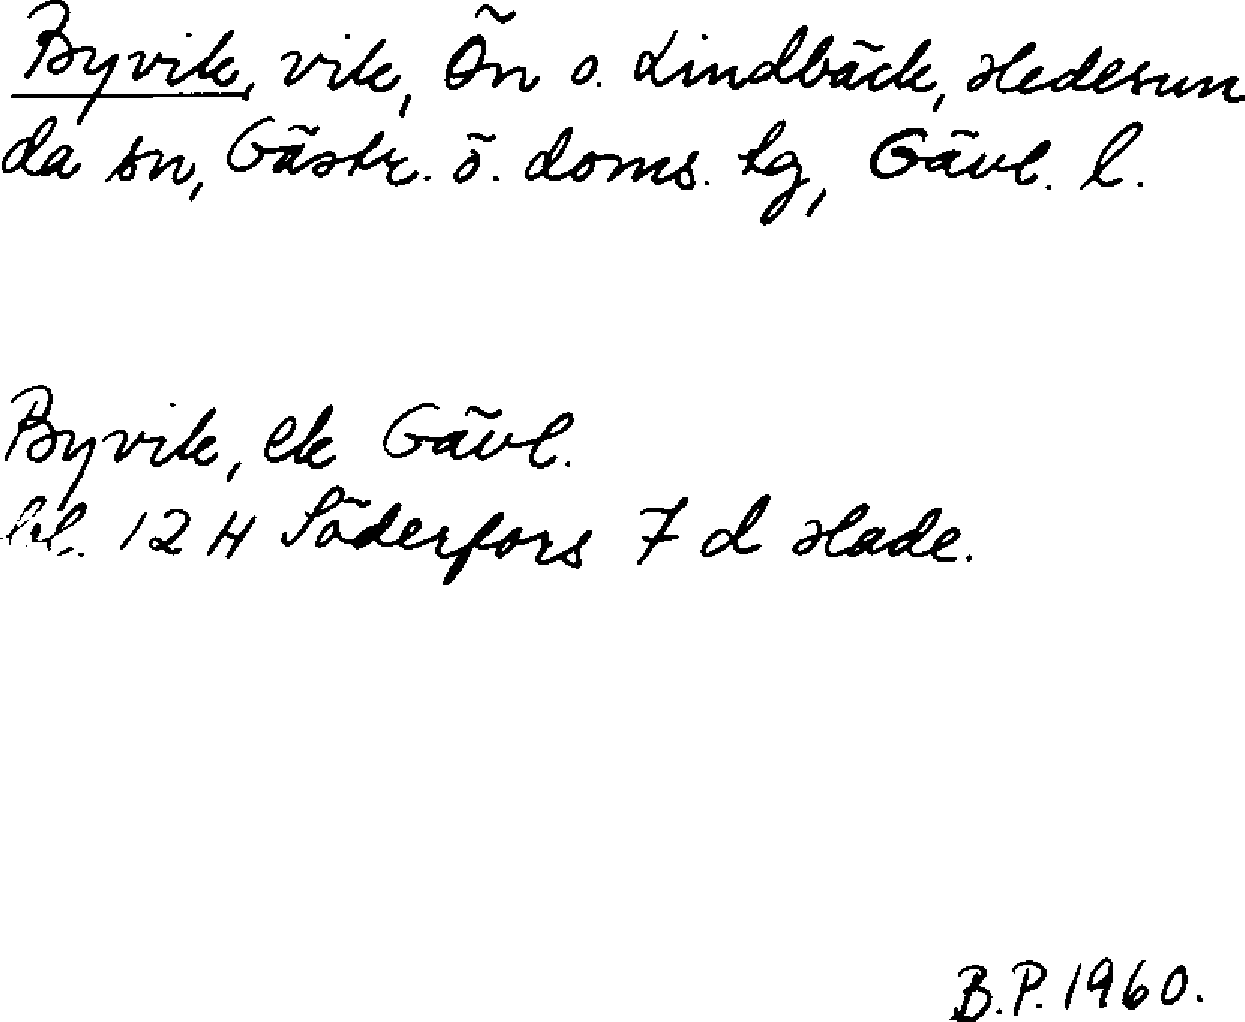 Byvik, vik, Ön o. Lindbäck, Hedesun
da sn, Gästr. ö. doms. tg, Gävl. l.
Byvik, ek Gävl.
bl. 12 H Söderfors 7 d Hade.
B.P. 1960.